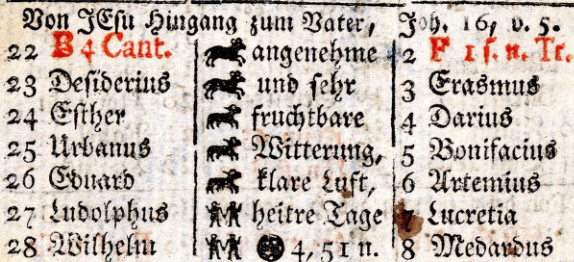 Von JEsu Hingang zum Vater, Joh. 16, v. 5.
22 B 4 Cant. angenehme 2 F 1 s. n. Tr.
23 Desiderius und sehr 3 Erasmus
24 Esther fruchtbare 4 Darius
25 Urbanus Witterung, 5 Bonifacius
26 Eduard klare Luft, 6 Artemius
27 Ludolphus heitre Tage 7 Lucretia
28 Wilhelm 4, 51 n. 8 Medardus